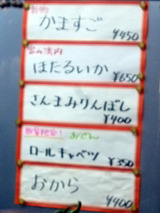 かますご
¥450
ほたるいか
¥650
さんまみりんぼし
¥400
おでん
ロールキャベツ
¥350
おから
¥400